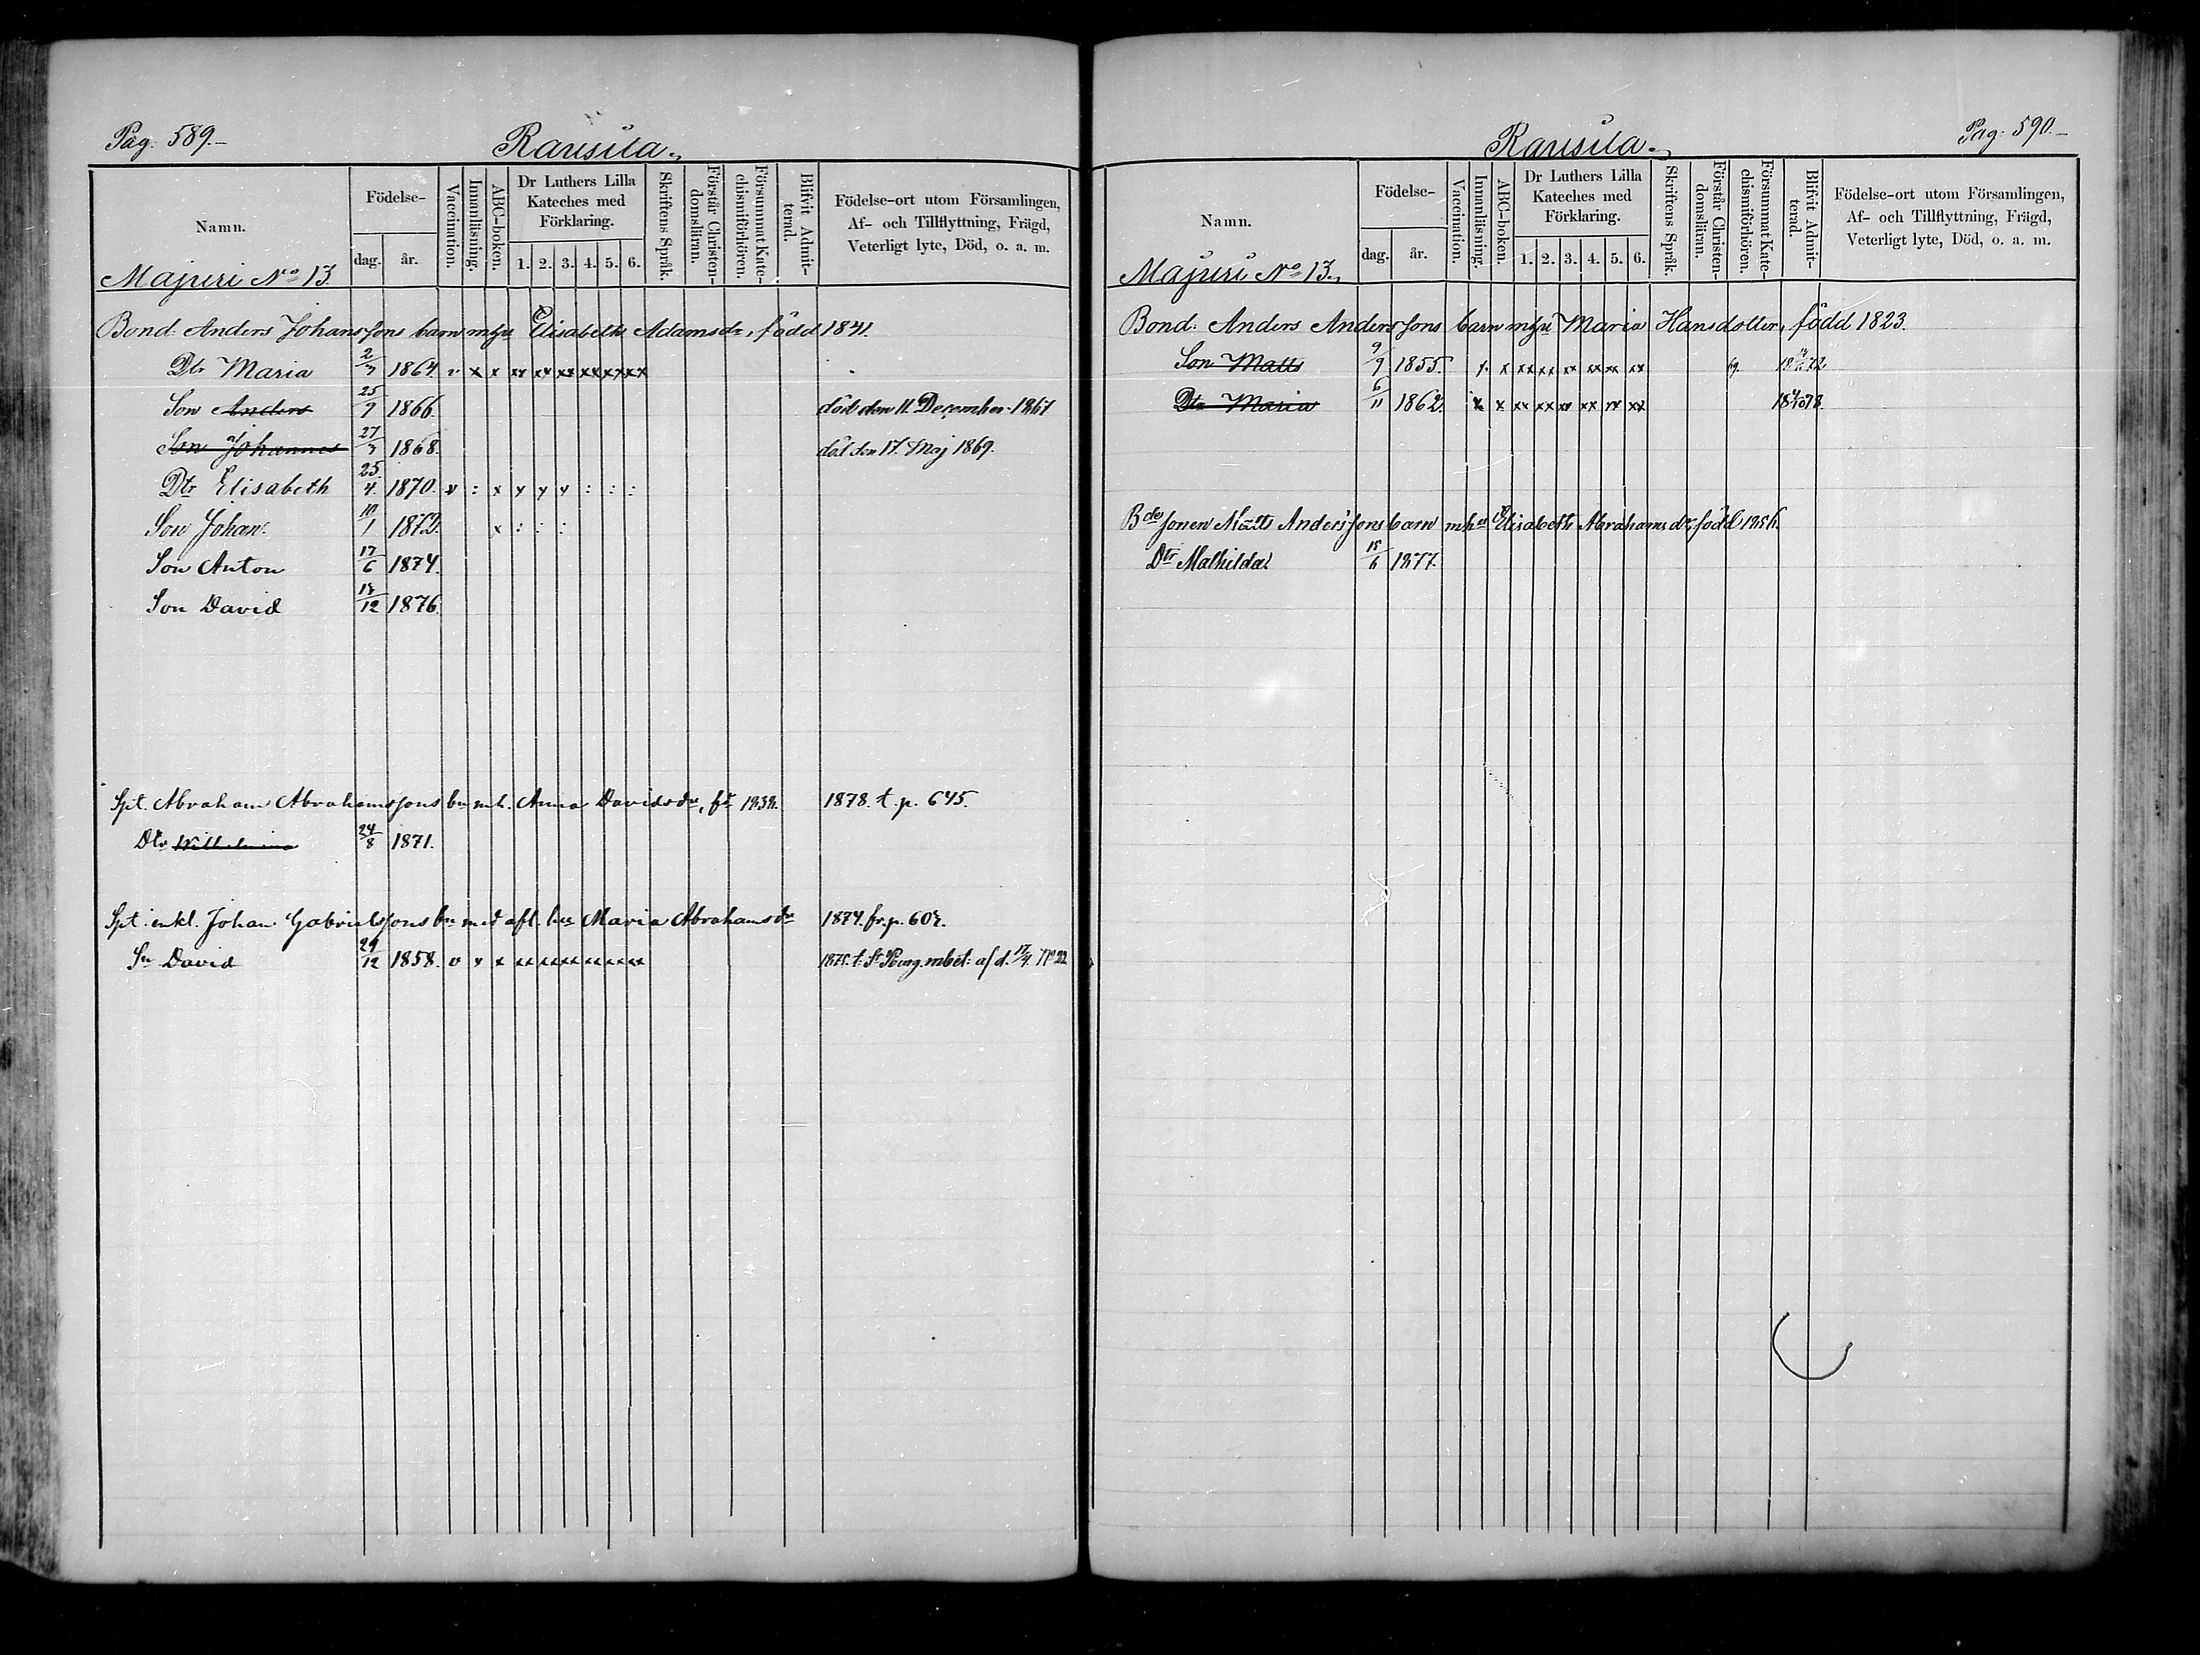 Pag. 589.
Rausila.
Namn.
Födelse-
dag. år.
Vaccination.
Innanläsning.
ABC-boken.
Dr Luthers Lilla Kateches med Förklaring.
1. 2. 3. 4. 5. 6.
Skriftens Språk.
Förstår Christendomsläran.
Försummat Katechismiförhören.
Blifvit Admitterad.
Födelse-ort utom Församlingen,
Af- och Tillflyttning, Frägd,
Veterligt lyte, Död, o. a. m.
Majuri No 13.
Bond. Anders Johanssons barn mhu Elisabeth Adamsdr, född 1841.
Dtr Maria 2/7 1864. v x x xx xx xx xx xx xx
Son Anders 25/9 1866. död den 11. December 1867
Son Johannes 27/7 1868. död den 17. Maj 1869.
Dtr Elisabeth 25/4 1870. v : x x x x : : :
Son Johan. 10/1 1872. x : : :
Son Anton 17/6 1874.
Son David 18/12 1876.
Spt. Abraham Abrahamssons bn mh. Anna Davidsdr, fd 1838. 1878. t. p. 645.
Dtr Wilhelmina 24/8 1871.
Spt. enkl. Johan Gabrielssons bn med afl. hu Maria Abrahamsdr 1874. fr. p. 608.
Sn David 29/12 1858. v x x xx xx xx xx xx xx t. St Pburg. mbet: af d. 17/4. No 22
Pag. 590.
Rausila.
Namn.
Födelse-
dag. år.
Vaccination.
Innanläsning.
ABC-boken.
Dr Luthers Lilla Kateches med Förklaring.
1. 2. 3. 4. 5. 6.
Skriftens Språk.
Förstår Christendomsläran.
Försummat Katechismiförhören.
Blifvit Admitterad.
Födelse-ort utom Församlingen,
Af- och Tillflyttning, Frägd,
Veterligt lyte, Död, o. a. m.
Majuri No 13.
Bond. Anders Anderssons barn mhu Maria Hansdotter, född 1823.
Son Matts 9/9 1855. x x xx xx xx xx xx xx 69.
Dtr Maria 6/11 1862. x x xx xx xx xx xx xx
Bdesonen Matts Anderssons barn mhu Elisabeth Abrahamsdr, född 1856.
Dtr Mathilda 15/6 1877.